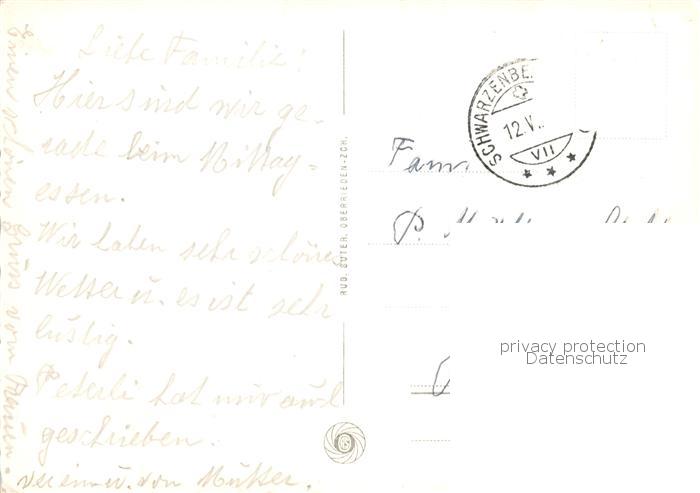 Liebe Familie!
Hier sind wir ge-
rade beim Mittag-
essen.
Wir haben sehr schönes
Wetter u. es ist sehr
lustig.
Peterli hat mir auch
geschrieben.
Einen schönen Gruss vom Frauen-
verein u. von Mutter.
RUD. SUTER, OBERRIEDEN-ZCH.
SCHWARZENBE
12.V.
VII
Fam.
P.
privacy protection
Datenschutz